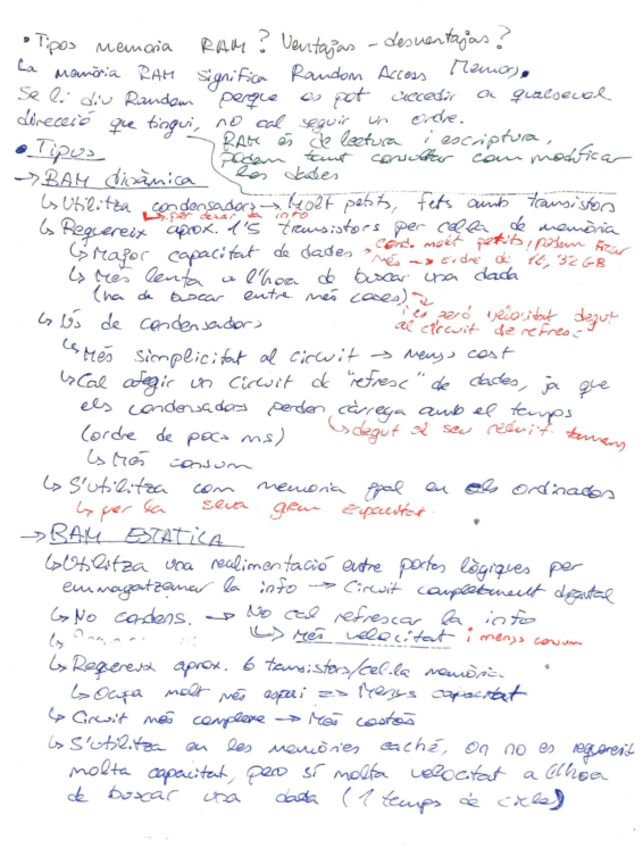 • Tipos memoria RAM? Ventajas - desventajas?
La memòria RAM significa Random Access Memory.
Se li diu Random perque es pot accedir a qualsevol
direcció que tingui, no cal seguir un ordre.
RAM és de lectura i escriptura,
podem tant consultar com modificar
les dades
• Tipus
→ RAM dinàmica
↳ Utilitza condensadors → Molt petits, fets amb transistors
↳ per desar la info
↳ Requereix aprox. 1'5 transistors per cel·la de memòria
↳ Major capacitat de dades → cond. molt petits, podem ficar
més → ordre de 16, 32 GB
↳ Més lenta a l'hora de buscar una dada
(ha de buscar entre més coses)
però velocitat degut
al circuit de refresc
↳ Ús de condensadors
↳ Més simplicitat al circuit → Menys cost
↳ Cal afegir un circuit de "refresc" de dades, ja que
els condensadors perden càrrega amb el temps
(ordre de pocs ms) ↳ degut al seu reduit tamany
↳ Més consum
↳ S'utilitza com memoria ppal en els ordinadors
↳ per la seva gran capacitat.
→ RAM ESTATICA
↳ Utilitza una realimentació entre portes lògiques per
emmagatzemar la info → Circuit completament digital
↳ No condens. → No cal refrescar la info
↳ Més velocitat i menys consum
↳ Requereix aprox. 6 transistors/cel·la memòria
↳ Ocupa molt més espai => Menys capacitat
↳ Circuit més complexe → Més costós
↳ S'utilitza en les memòries caché, on no es requereix
molta capacitat, pero sí molta velocitat a l'hora
de buscar una dada (1 temps de cicle)